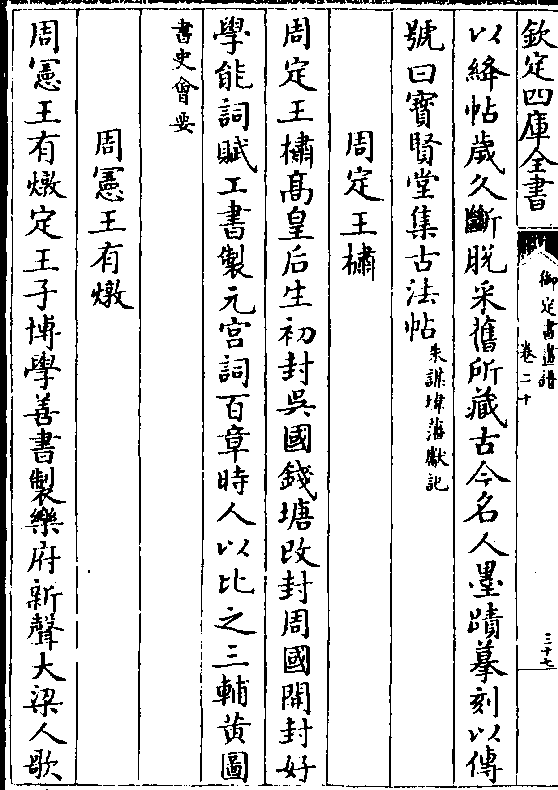 欽定四庫全書
御定書畫譜
卷二十
三十七
以絳帖歲久斷脱采舊所藏古今名人墨蹟摹刻以傳
號曰寶賢堂集古法帖朱謀㙔藩獻記
周定王橚
周定王橚高皇后生初封吳國錢塘改封周國開封好
學能詞賦工書製元宫詞百章時人以比之三輔黄圖
書史會要
周憲王有燉
周憲王有燉定王子博學善書製樂府新聲大梁人歌